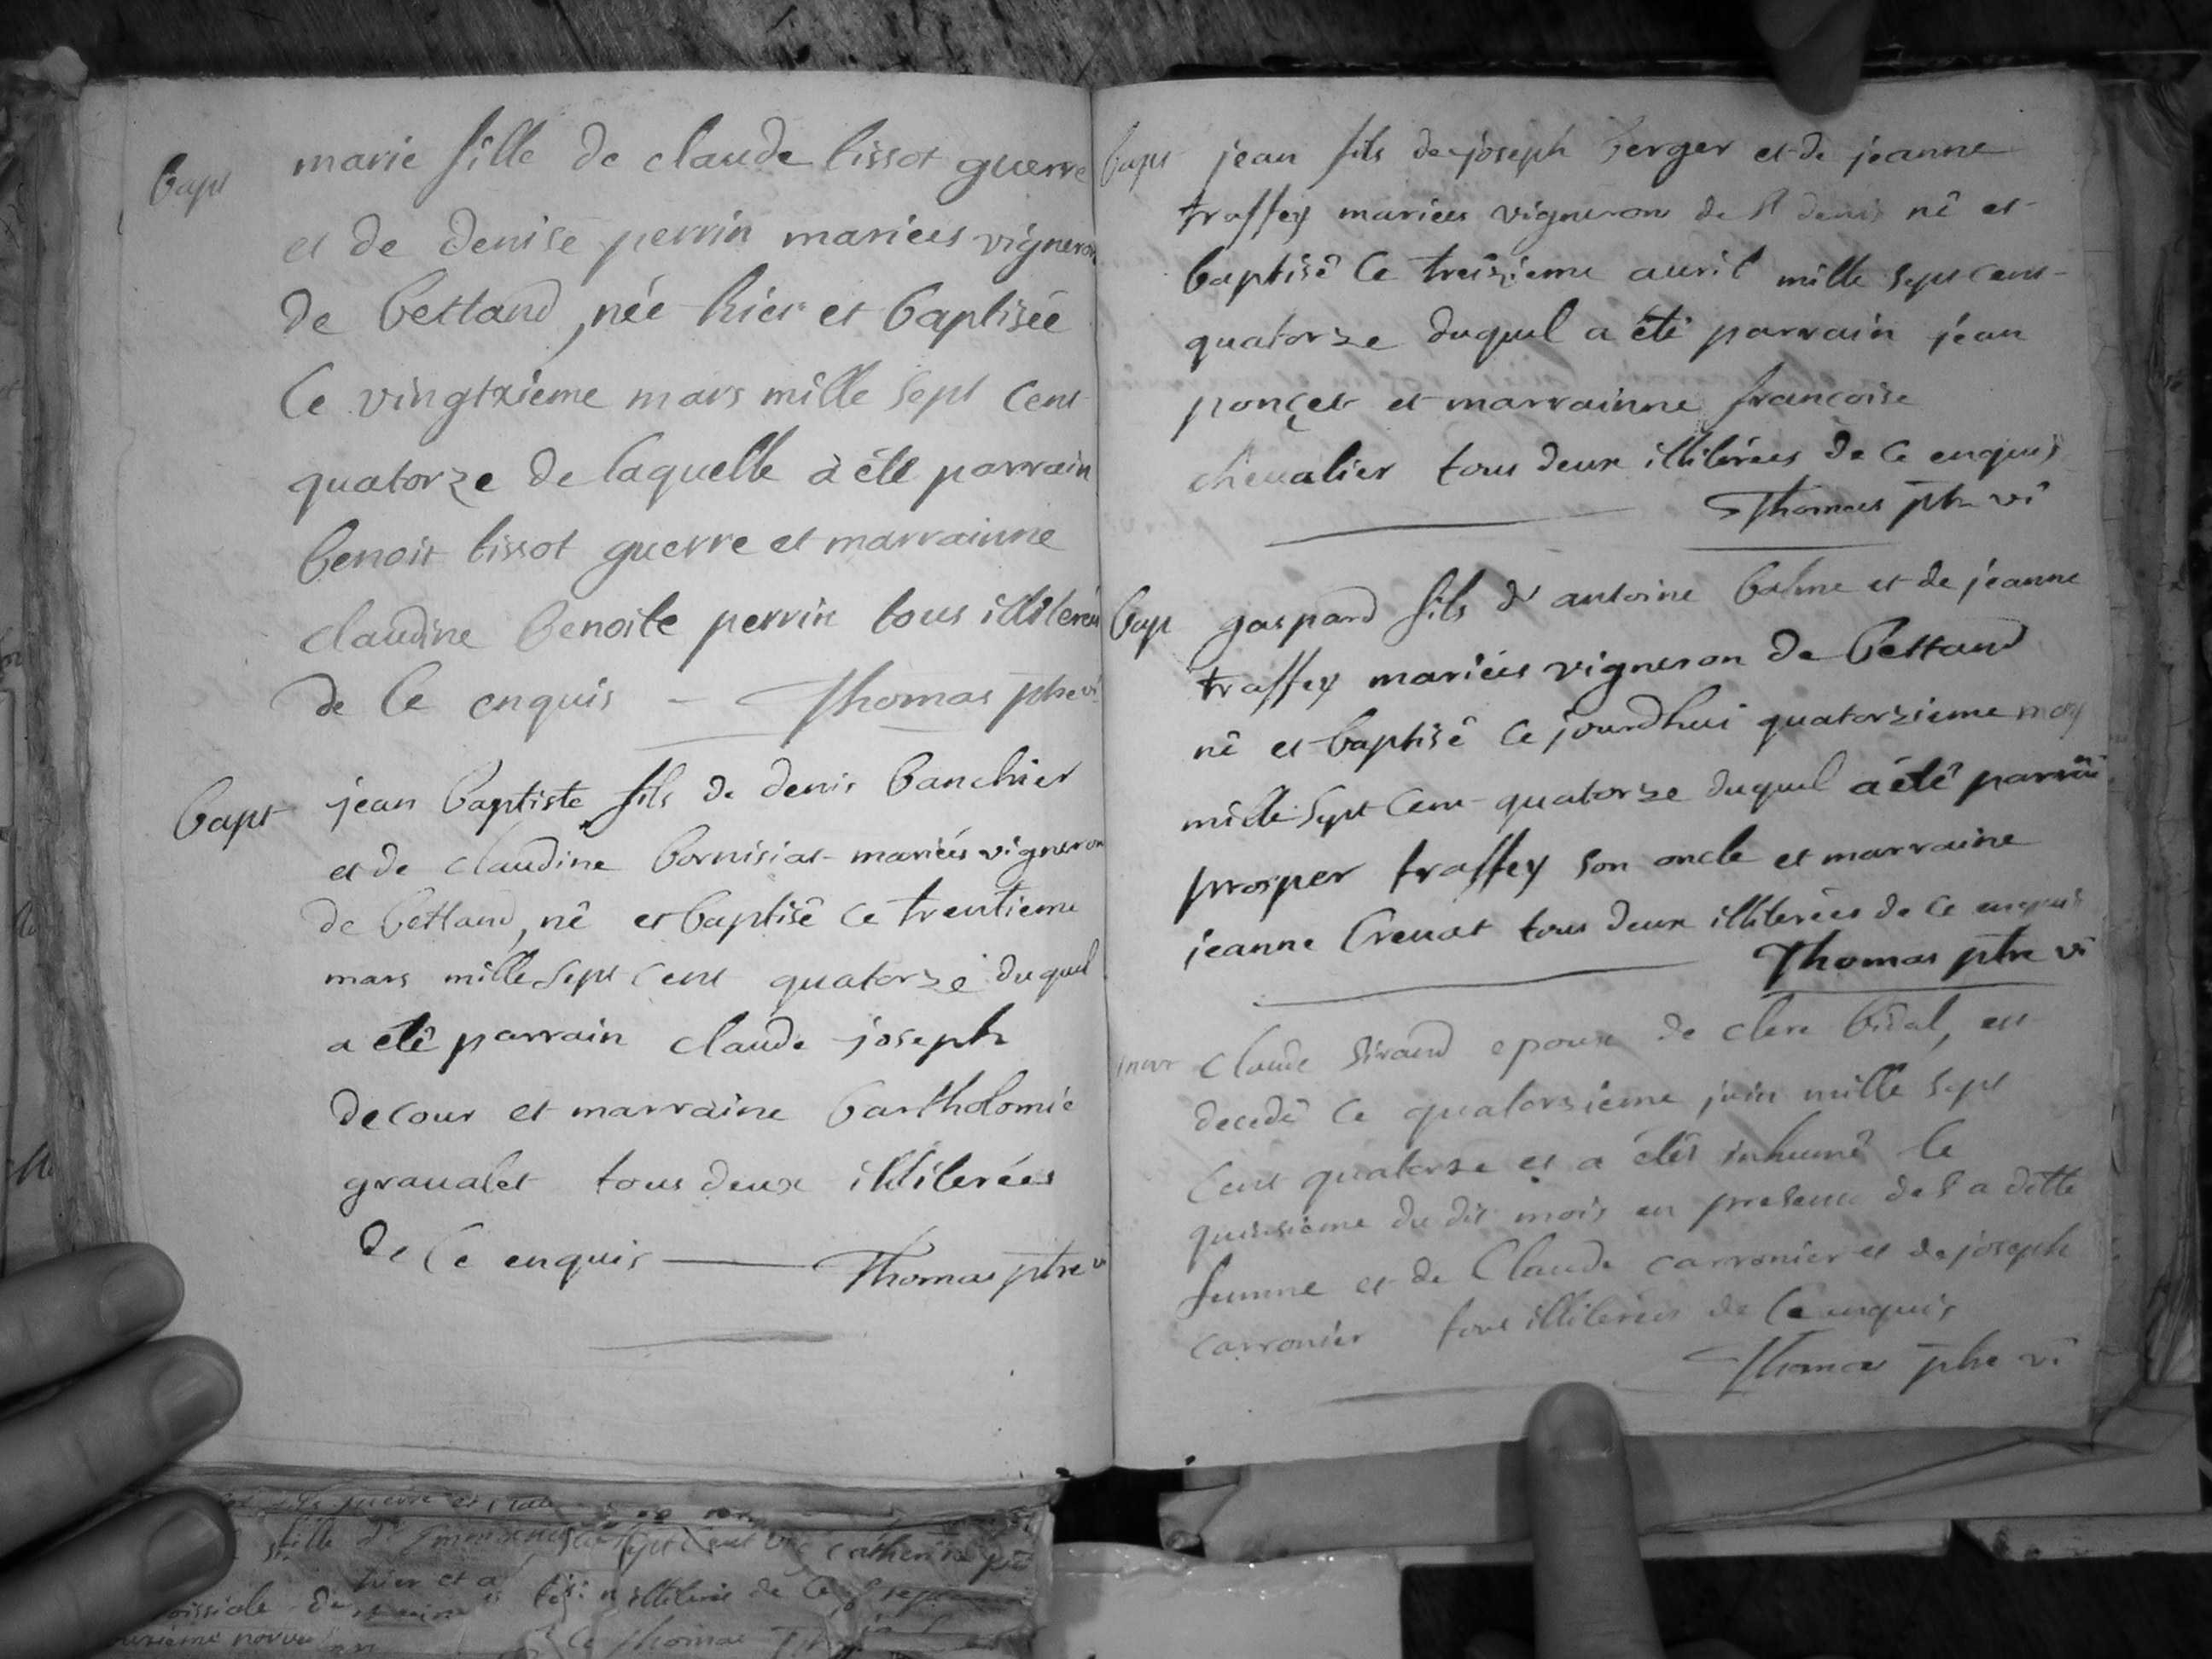 bapt
marie fille de claude tissot guerre
et de denise perrin mariées vigneron
de bettand, née hier et baptisée
ce vingtxieme mars mille sept cent
quatorze de laquelle à été parrain
benoit tissot guerre et marrainne
claudine benoite perrin tous illiterées
de ce enquis - Thomas ptre vi
bapt
jean baptiste fils de denis banchier
et de claudine bornisiat mariées vigneron
de bettand, né et baptisê ce trentieme
mars mille sept cent quatorze duquel
a étê parrain claude joseph
decour et marraine bartholomie
graualet tous deux illiterées
de ce enquis Thomas ptre v
bapt
jean fils de joseph berger et de jeanne
traffey mariées vigneron de st denis nê et
baptisê ce treizieme auril mille sept cent
quatorze duquel a été parrain jean
ponçet et marrainne francoise
cheualier tous deux illiterées de ce enquis
Thomas ptre vi
bap
gaspard fils d'antoine balme et de jeanne
traffey mariées vigneron de bettand
nê et baptisê ce jourdhui quatorzieme may
mille sept cent quatorze duquel a étê parrain
prosper traffey son oncle et marraine
jeanne Creuat tous deux illiterées de ce enquis
Thomas ptre vi
mor
Claude Sirand epoux de clere bidal, est
decedê ce quatorzieme juin mille sept
cent quatorze et a étês inhumê le
quinsieme du dit mois en presence de sa ditte
femme et de Claude carronier et de joseph
carronier tous illiterées de ce enquis
Thomas ptre vi
fille d'
sept cent
catherine
hier et a
illiterées de ce
Thomas